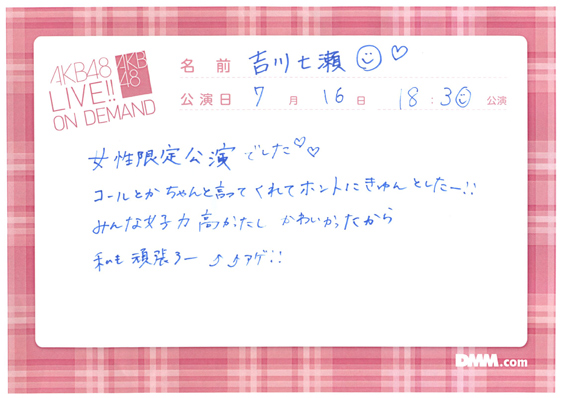 AKB48
LIVE!!
ON DEMAND
AKB
48
名前 吉川七瀬
公演日 7月16日 18:30公演
女性限定公演でした♡♡
コールとかちゃんと言ってくれてホントにきゅんとしたー!!
みんな女子力高かたし かわいかったから
私も頑張ろー ⤴⤴アゲ!!
DMM.com